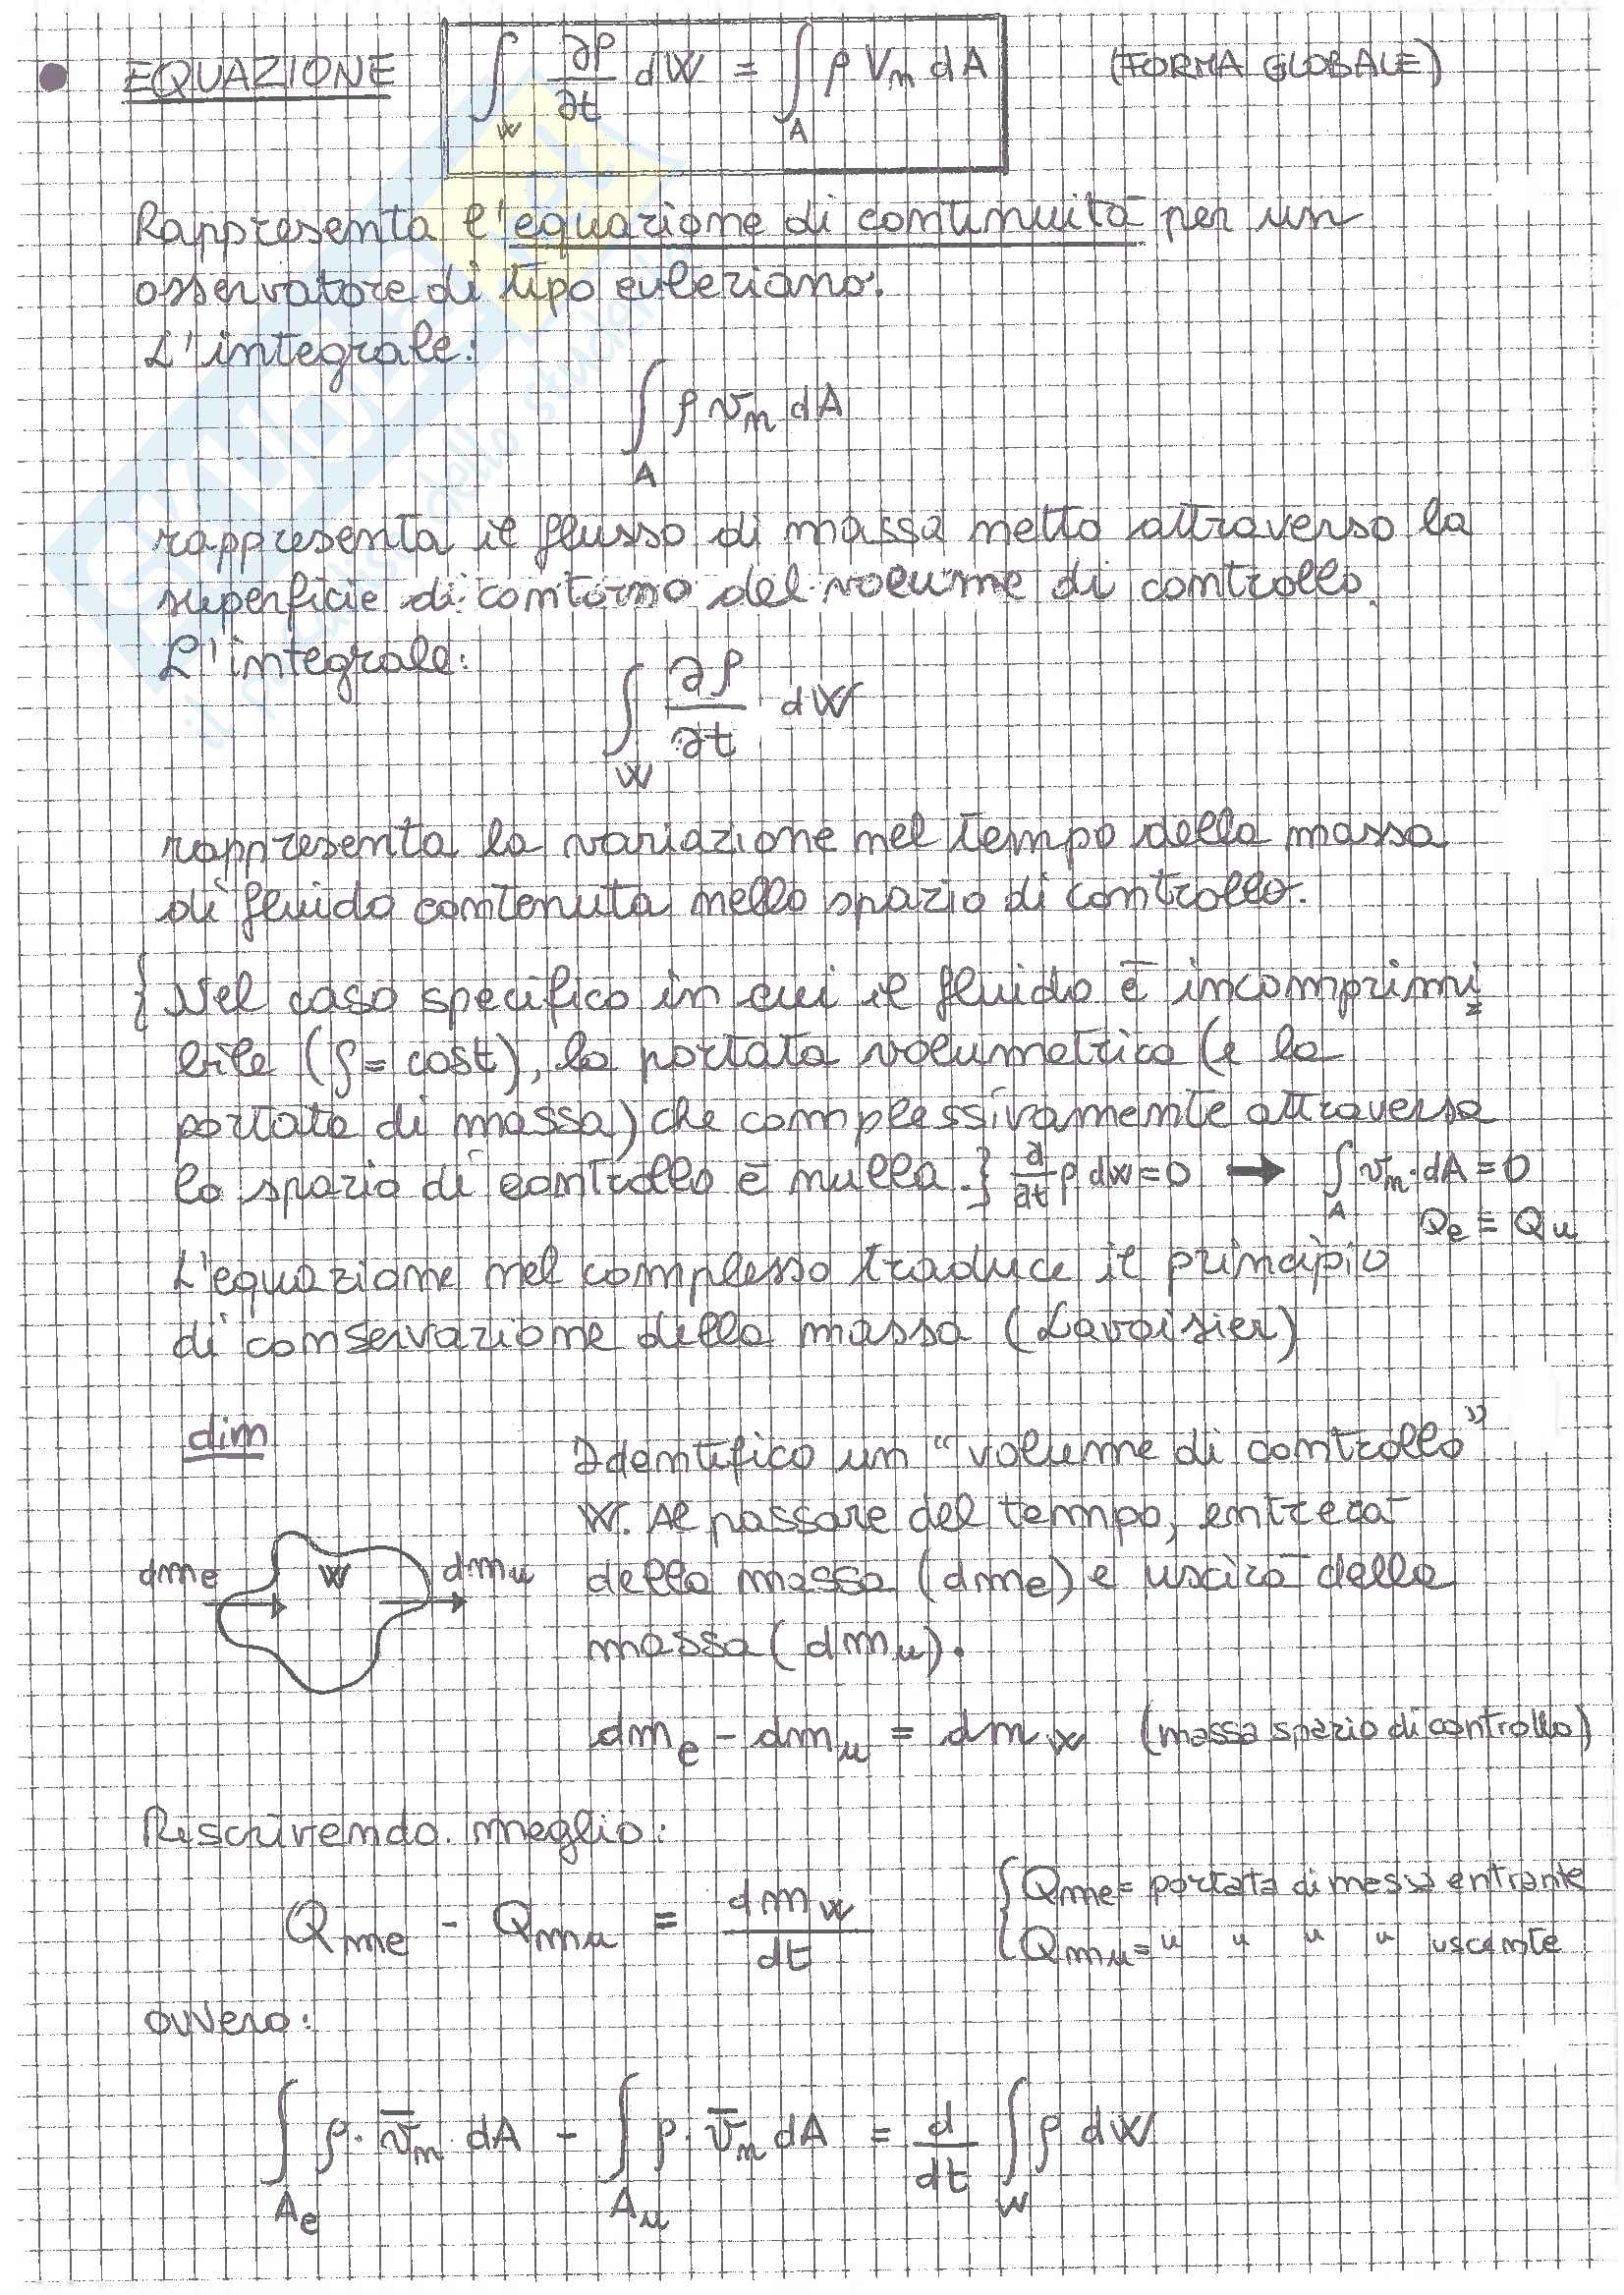 EQUAZIONE ∫_W ∂ρ/∂t dW = ∫_A ρ V_n dA (FORMA GLOBALE)
Rappresenta l'equazione di continuità per un
osservatore di tipo euleriano.
L'integrale:
∫_A ρ v_n dA
rappresenta il flusso di massa netto attraverso la
superficie di contorno del volume di controllo.
L'integrale:
∫_W ∂ρ/∂t dW
rappresenta la variazione nel tempo della massa
di fluido contenuta nello spazio di controllo.
{ Nel caso specifico in cui il fluido è incomprimi
bile (ρ = cost), la portata volumetrica (e la
portata di massa) che complessivamente attraversa
lo spazio di controllo è nulla. } ∂/∂t ρ dW = 0 → ∫_A v_n · dA = 0
Q_e = Q_u
L'equazione nel complesso traduce il principio
di conservazione della massa (Lavoisier)
dim
Identifico un "volume di controllo"
W. Al passare del tempo, entrerà
della massa (dm_e) e uscirà della
massa (dm_u).
dm_e W dm_u
dm_e - dm_u = dm_W (massa spazio di controllo)
Riscrivendo meglio:
Q_me - Q_mu = dm_W/dt
{ Q_me = portata di massa entrante
Q_mu = " " " " uscente
ovvero:
∫_Ae ρ · v̄_n · dA - ∫_Au ρ · v̄_n dA = d/dt ∫_W ρ dW